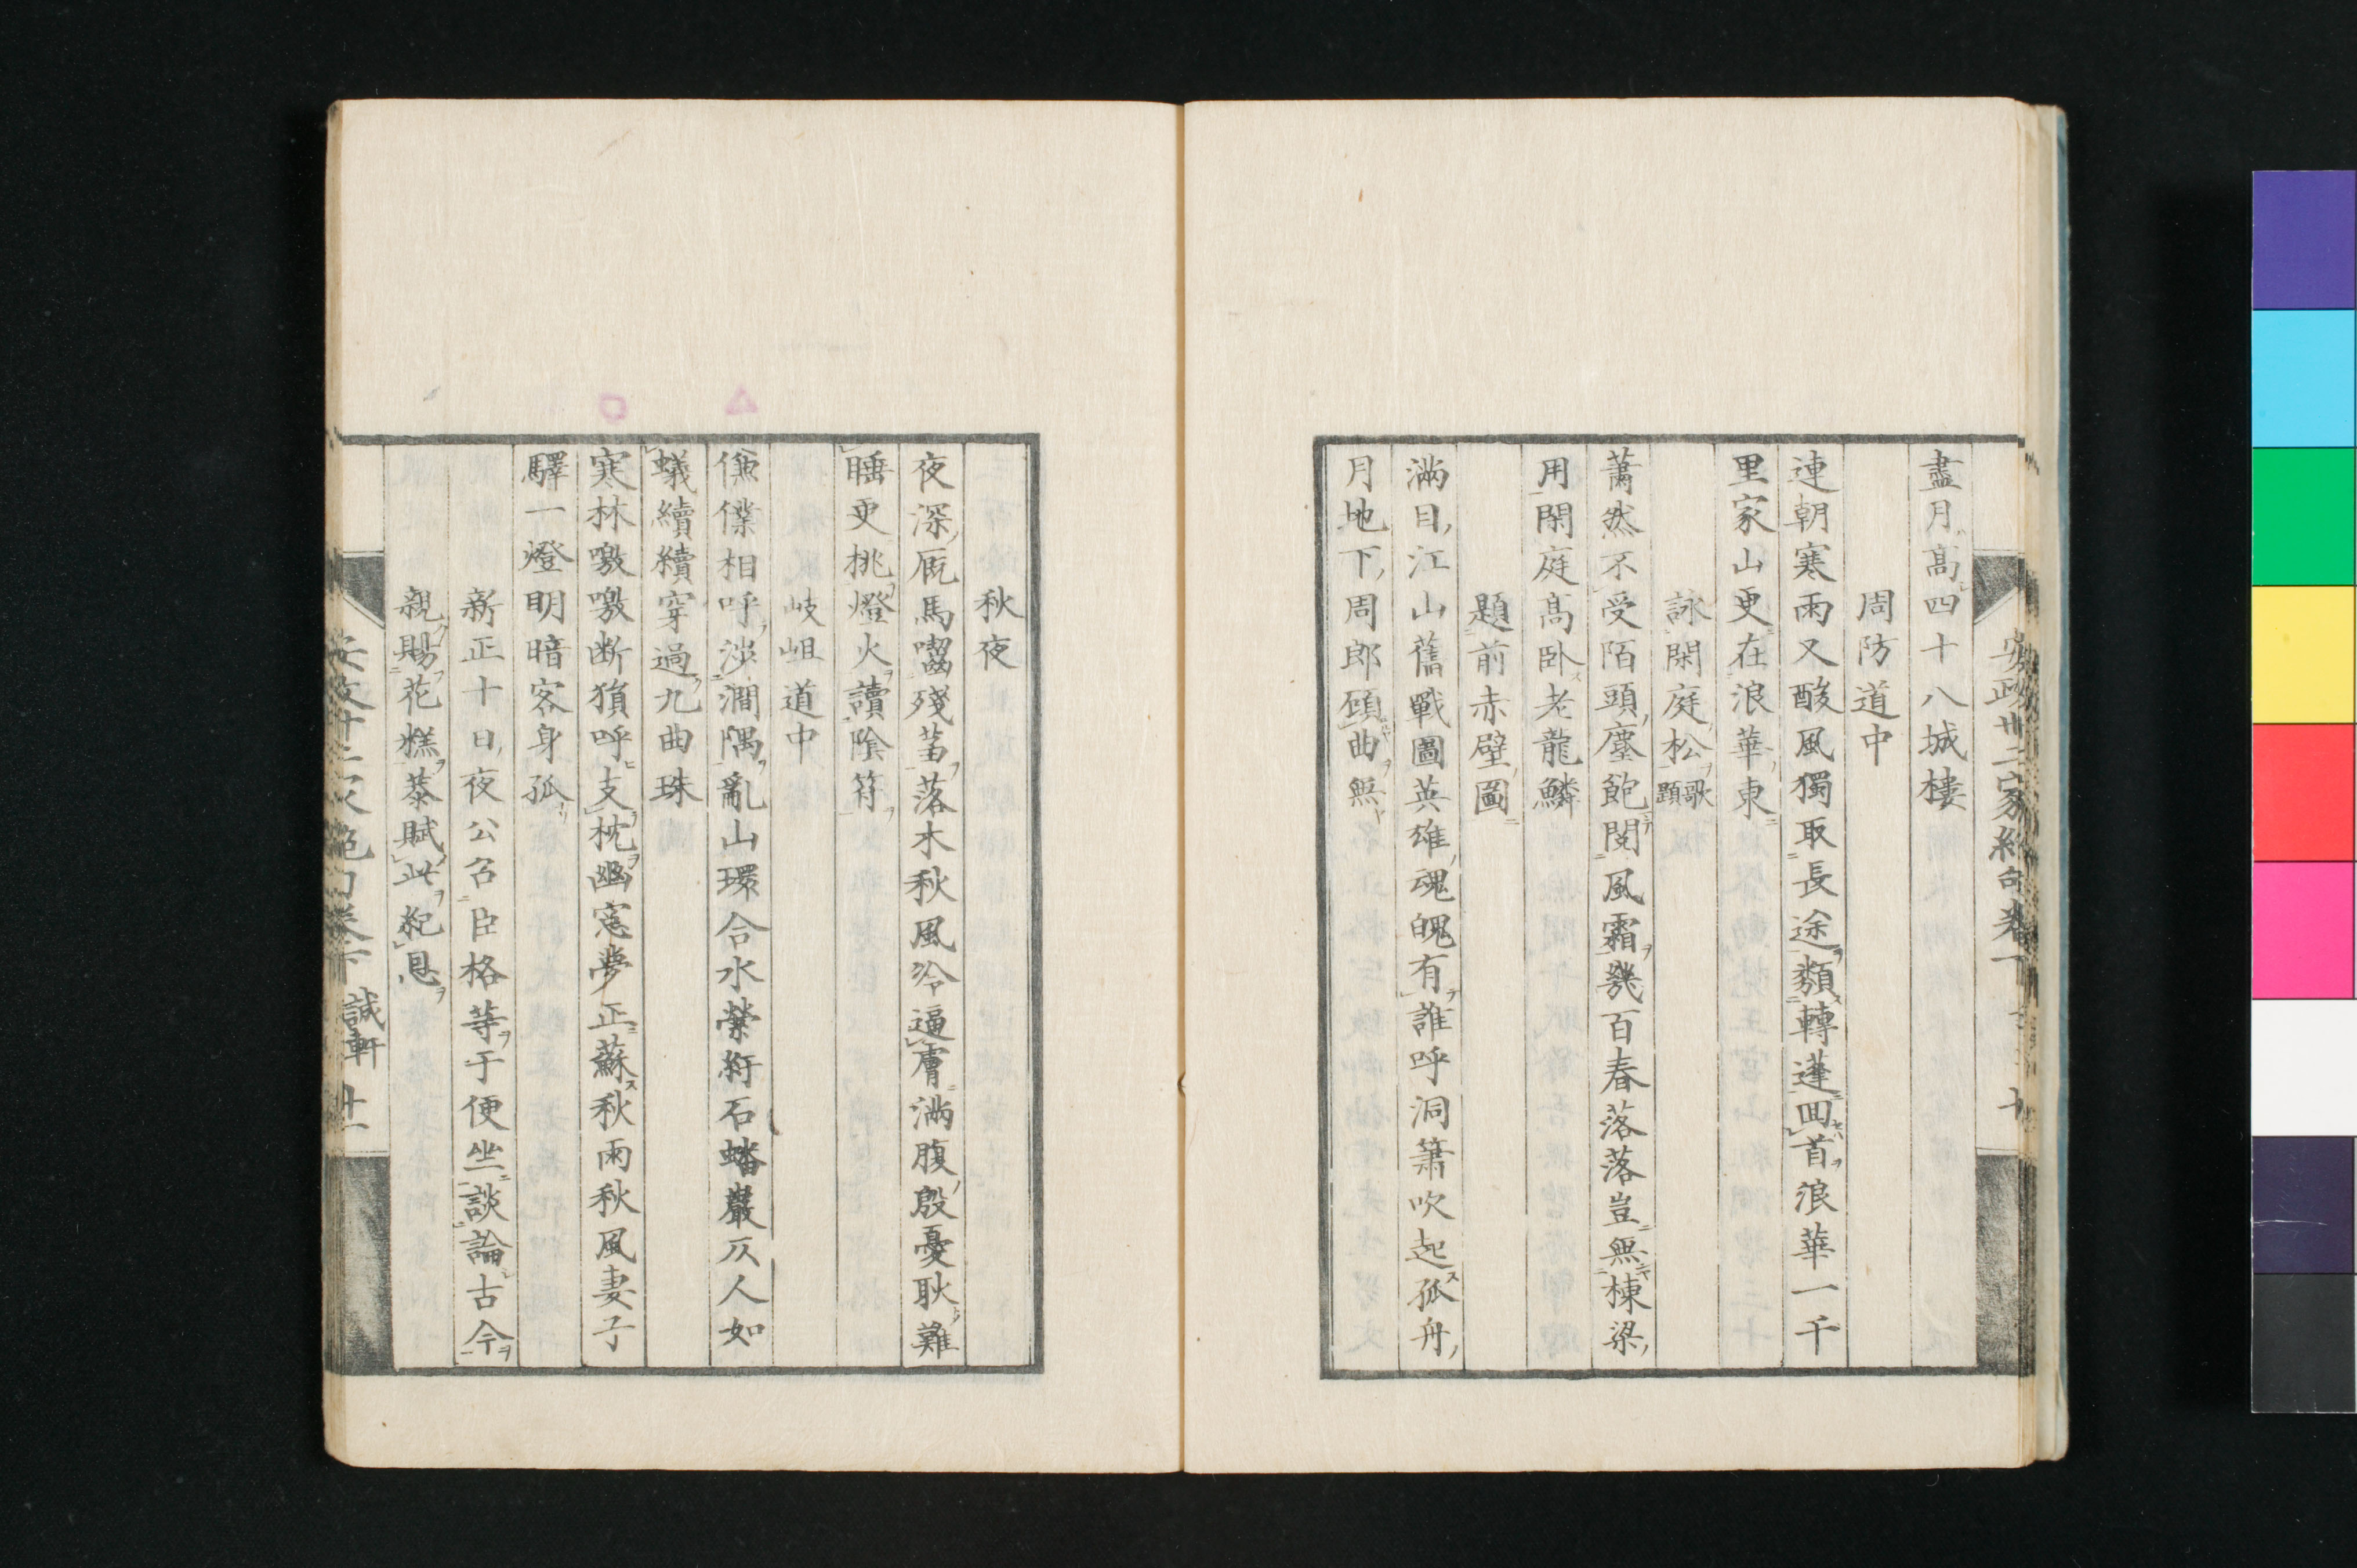 盡月高四十八城樓
周防道中
連朝寒雨又酸風獨取長途類轉蓬回首浪華一千
里家山更在浪華東
詠閑庭松歌題
蕭然不受陌頭塵飽閱風霜幾百春落落豈無棟梁
用閑庭高臥老龍鱗
題前赤壁圖
滿目江山舊戰圖英雄魂魄有誰呼洞簫吹起孤舟
月地下周郎顧曲無
秋夜
夜深厩馬囓殘芻落木秋風冷逼膚滿腹殷憂耿難
睡更挑燈火讀陰符
岐岨道中
儵傑相呼涉澗隅亂山環合水縈紆石蟠巖仄人如
蟻續續穿過九曲珠
寒林噭噭断猿呼支枕幽窓夢正蘇秋雨秋風妻子
驛一燈明暗客身孤
新正十日夜公召臣格等于便坐談論古今
親賜花糕恭賦此紀恩
安政卅二家絶句卷下 誠軒 廿一